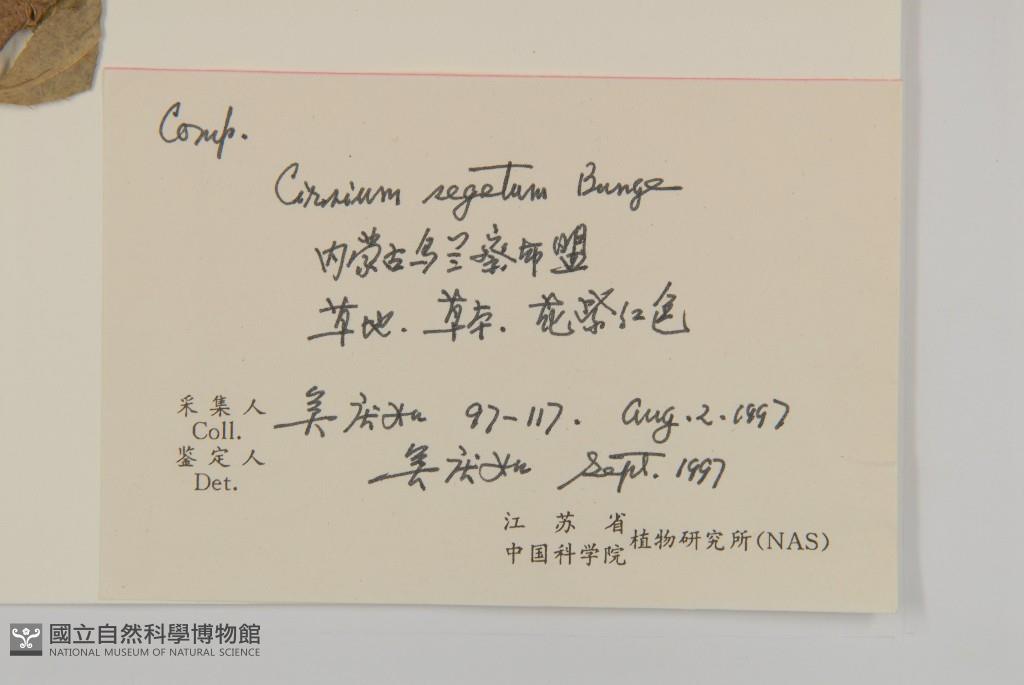 Comp.
Cirsium segetum Bunge
内蒙古乌兰察布盟
草地. 草本. 花紫红色
采集人 吴庆如 97-117. Aug.2.1997
Coll.
鉴定人 吴庆如 Sept. 1997
Det.
江苏省
中国科学院 植物研究所(NAS)
國立自然科學博物館
NATIONAL MUSEUM OF NATURAL SCIENCE